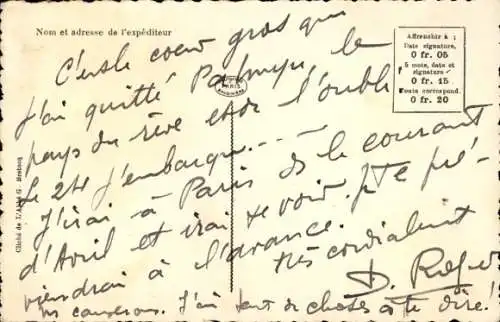 Nom et adresse de l'expéditeur
Affranchir à :
Date signature,
0 fr. 05
5 mots, date et
signature
0 fr. 15
Toute correspond.
0 fr. 20
PARIS
Cliché de L'Abbé G.
C'est le coeur gros que
j'ai quitté Palmyre, le
pays du rêve et de l'oubli
Le 24 j'embarque...
J'irai à Paris ds le courant
d'Avril et irai te voir. Je te pré-
viendrai à l'avance.
très cordialement
D.
ns causerons. J'ai tant de choses à te dire!